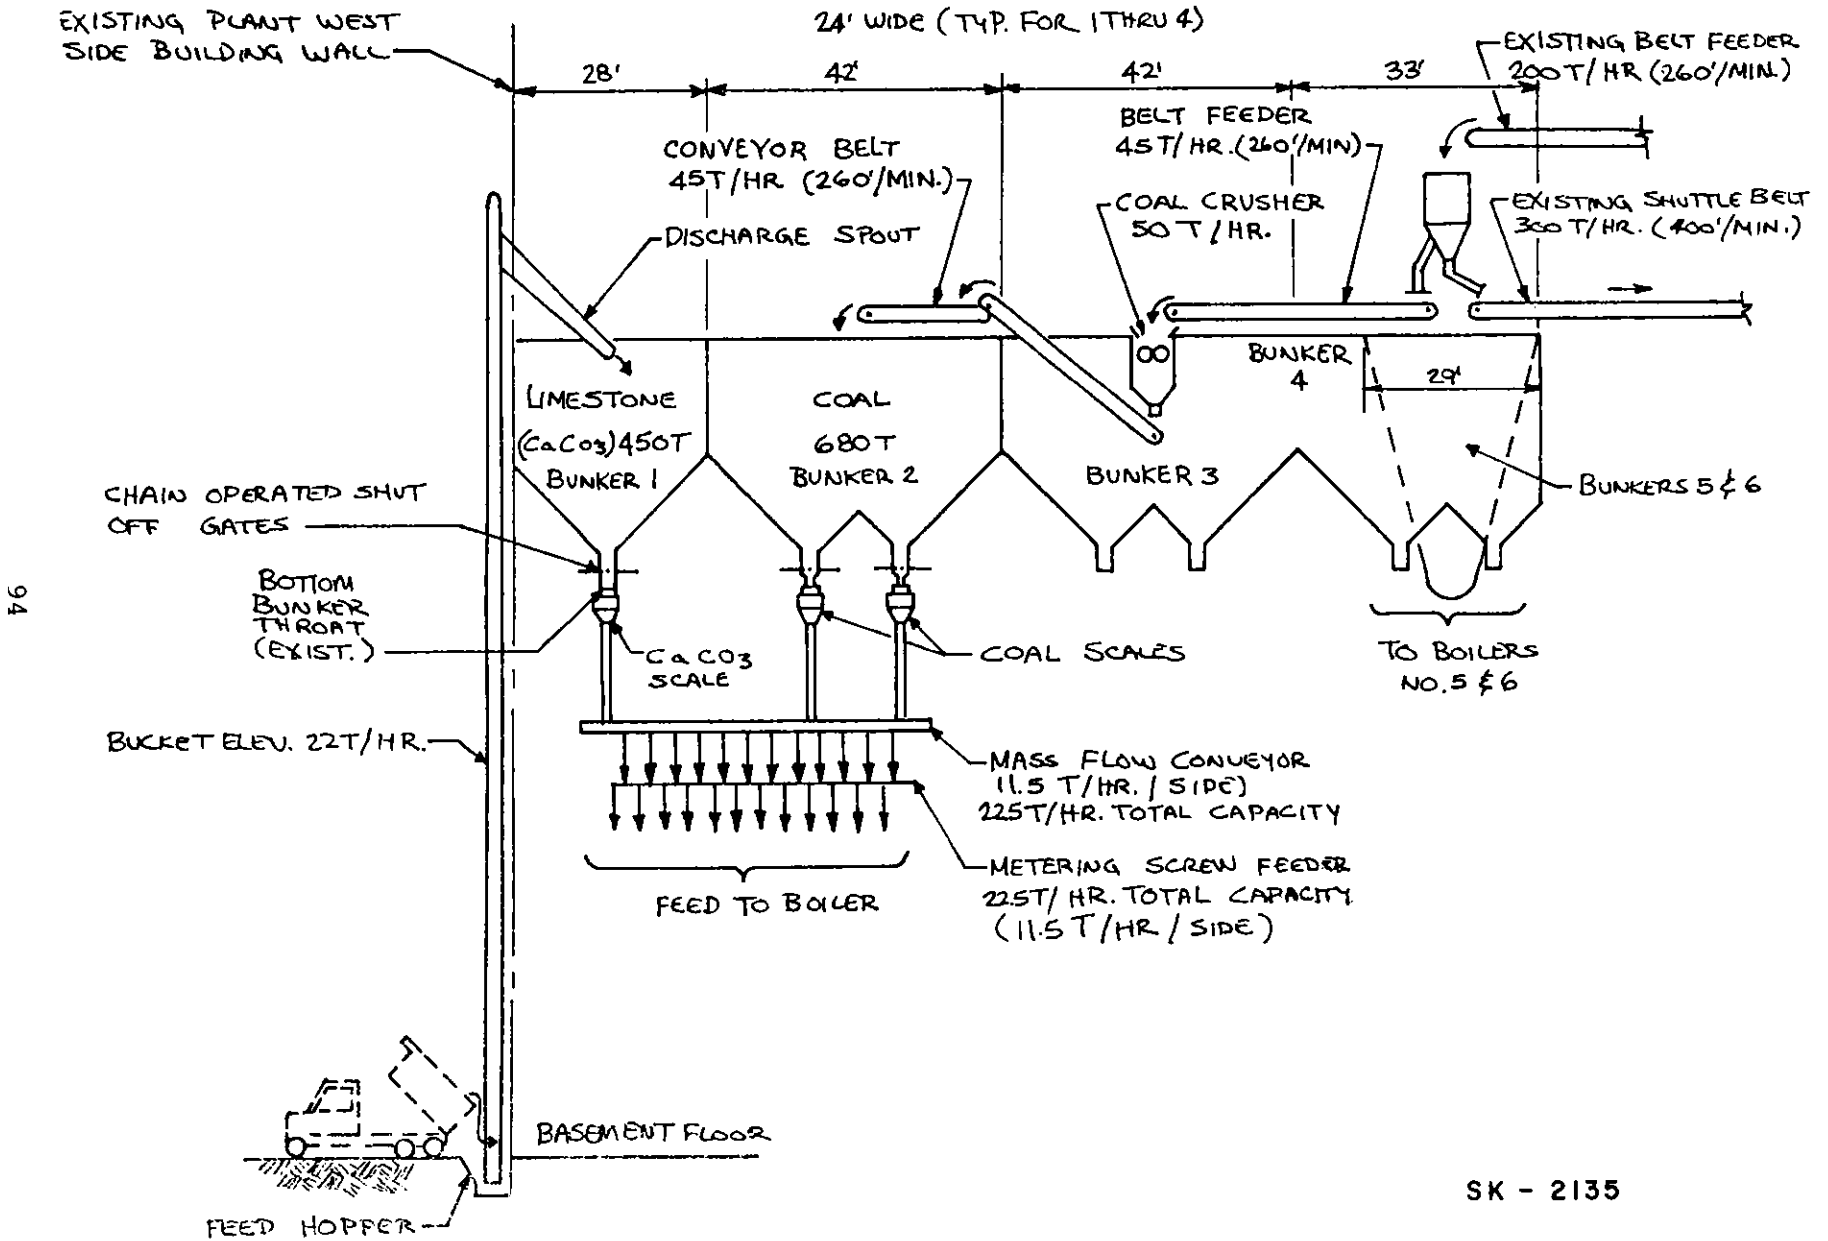 EXISTING PLANT WEST
SIDE BUILDING WALL
24' WIDE (TYP. FOR 1 THRU 4)
28'
42'
42'
33'
EXISTING BELT FEEDER
200 T/HR (260'/MIN.)
CONVEYOR BELT
45T/HR (260'/MIN.)
BELT FEEDER
45T/HR. (260'/MIN)
DISCHARGE SPOUT
COAL CRUSHER
50 T/HR.
EXISTING SHUTTLE BELT
300 T/HR. (400'/MIN.)
LIMESTONE
(CaCo3) 450T
BUNKER 1
COAL
680T
BUNKER 2
BUNKER 3
BUNKER
4
29'
BUNKERS 5 & 6
CHAIN OPERATED SHUT
OFF GATES
BOTTOM
BUNKER
THROAT
(EXIST.)
CaCO3
SCALE
COAL SCALES
TO BOILERS
NO. 5 & 6
BUCKET ELEV. 22T/HR.
MASS FLOW CONVEYOR
11.5 T/HR. / SIDE)
225T/HR. TOTAL CAPACITY
METERING SCREW FEEDER
22.5T/HR. TOTAL CAPACITY
(11.5 T/HR / SIDE)
FEED TO BOILER
BASEMENT FLOOR
FEED HOPPER
94
SK - 2135